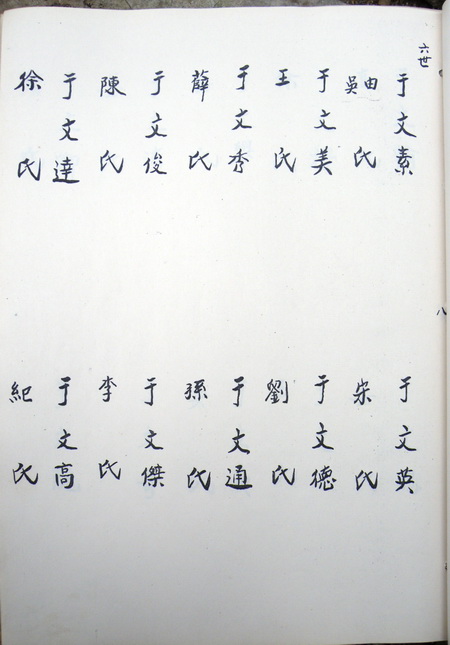 六世
于文素
吳由氏
于文美
王氏
于文秀
薛氏
于文俊
陳氏
于文達
徐氏
八
于文英
宋氏
于文德
劉氏
于文通
孫氏
于文傑
李氏
于文高
紀氏